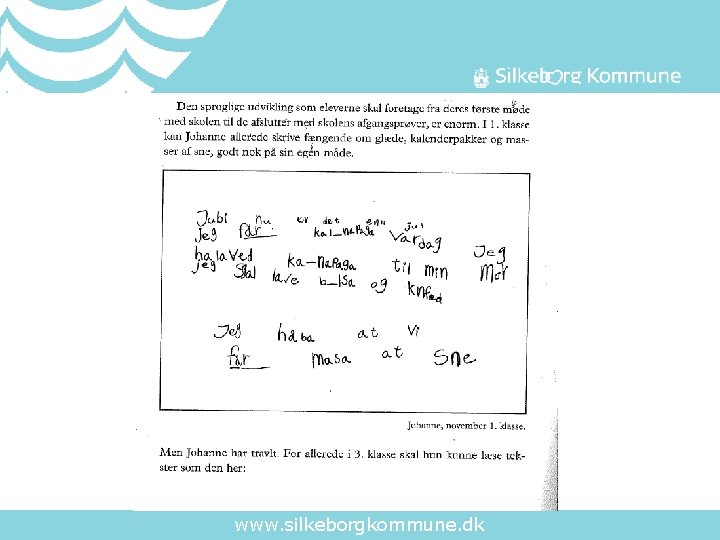 Silkeborg Kommune
Den sproglige udvikling som eleverne skal foretage fra deres første møde
med skolen til de afslutter med skolens afgangsprøver, er enorm. I 1. klasse
kan Johanne allerede skrive fængende om glæde, kalenderpakker og mas-
ser af sne, godt nok på sin egen måde.
Jubi nu er det enu jul
Jeg får kal_napaga vardag
halaved ka-napaga til min Jeg
jeg skal lave b_lsa og Mor
Jeg håba at vi
får masa at sne
Johanne, november 1. klasse.
Men Johanne har travlt. For allerede i 3. klasse skal hun kunne læse tek-
ster som den her:
www.silkeborgkommune.dk